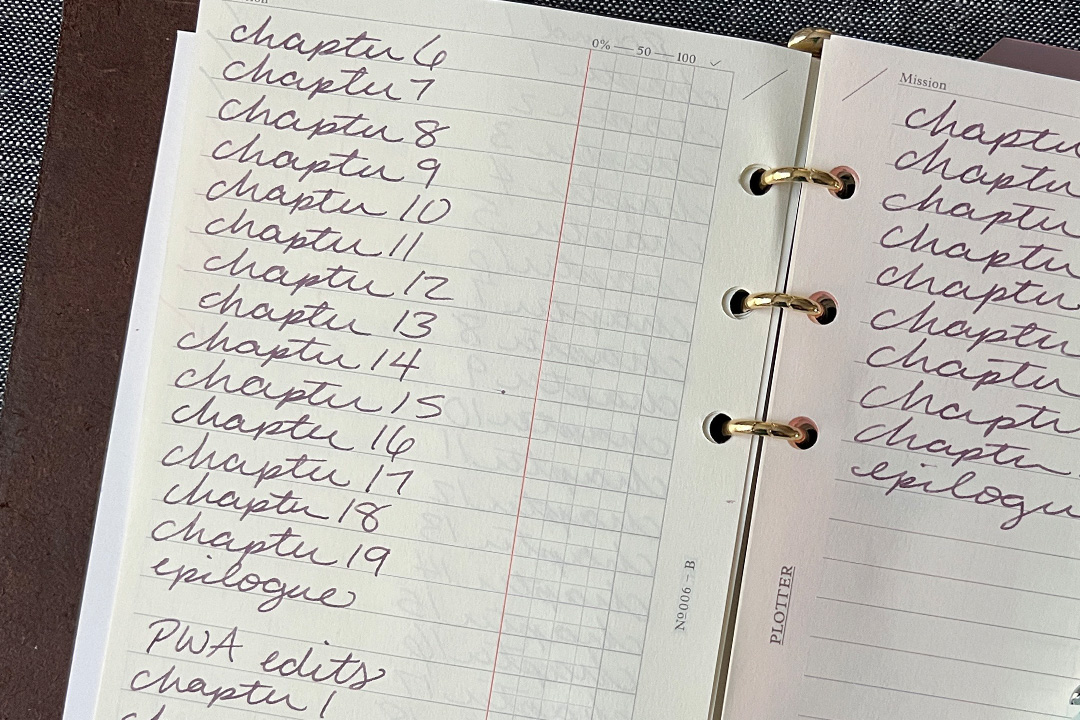 chapter 6
chapter 7
chapter 8
chapter 9
chapter 10
chapter 11
chapter 12
chapter 13
chapter 14
chapter 15
chapter 16
chapter 17
chapter 18
chapter 19
epilogue
PWA edits
chapter 1
0% — 50 — 100 ✓
Nº006 – B
Mission
chapte
chapte
chapte
chapte
chapte
chapte
chapte
chapte
chapter
epilogu
PLOTTER